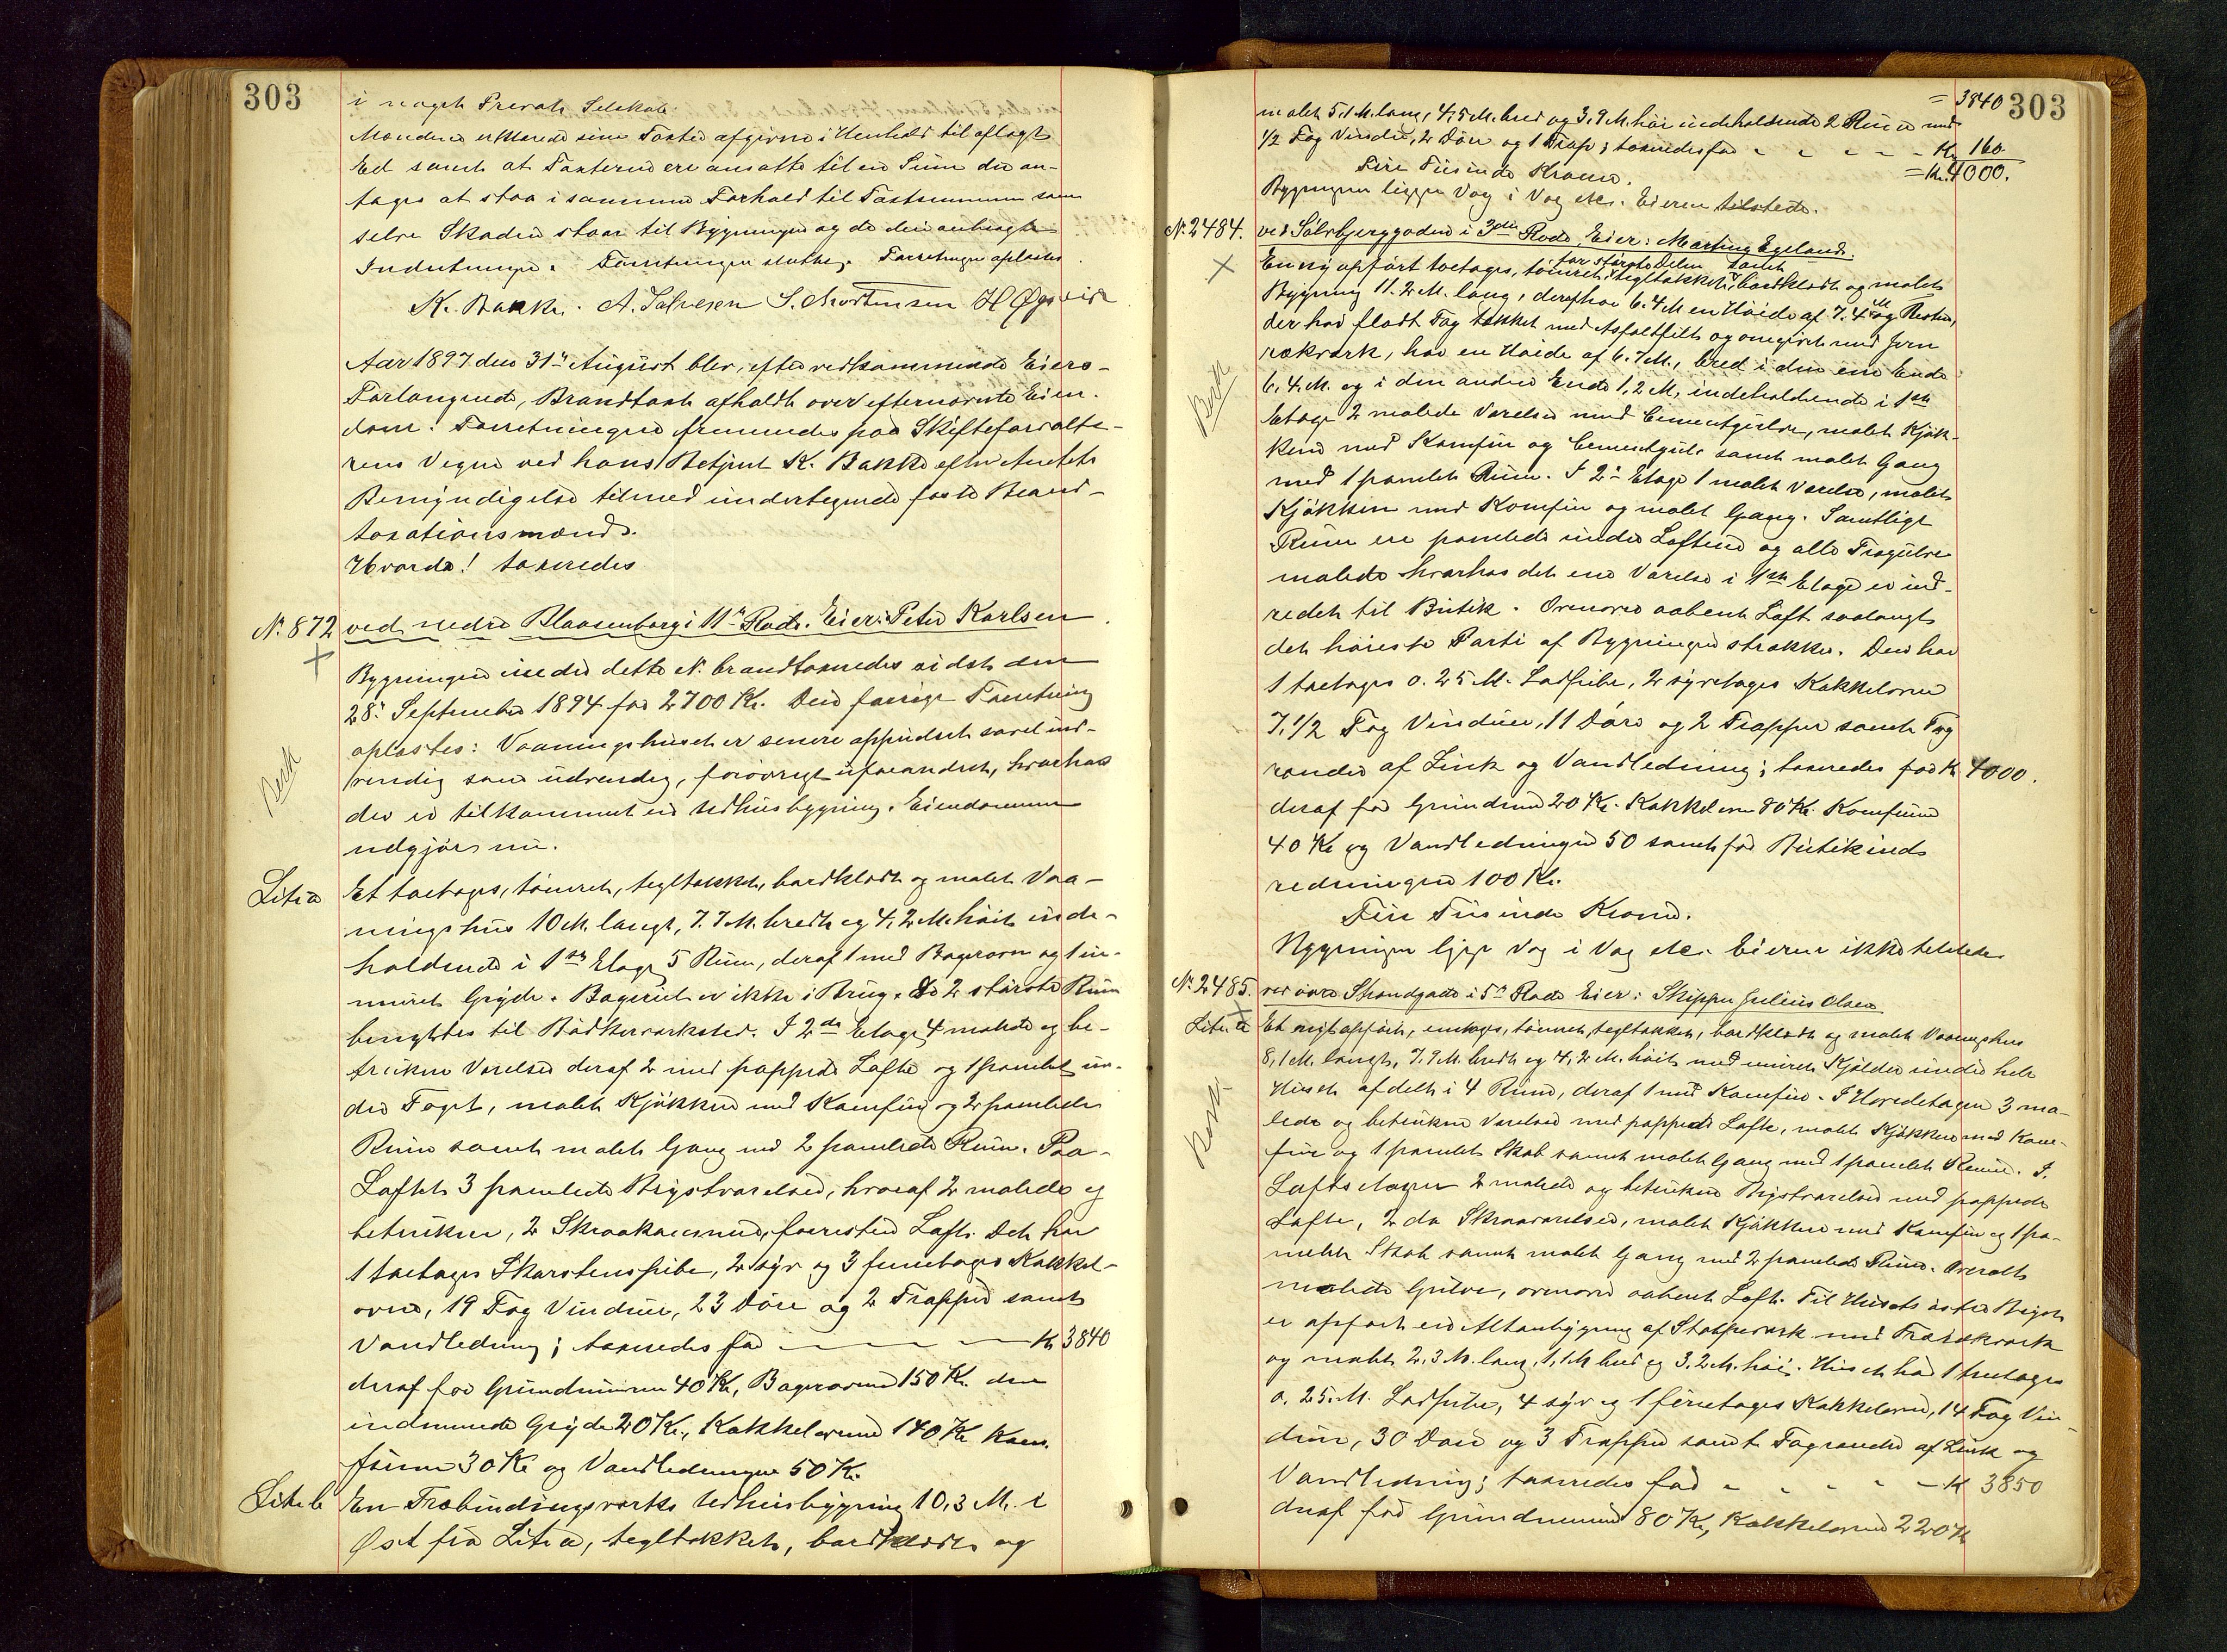 303
i noget Privat Selskab.
Mændene erklærede sine Taxter afgivne i Henhold til aflagt
Ed samt at Taxterne ere ansatte til en Sum der an-
tages at staa i samme Forhold til Taxtsummen som
selve Skaden staar til Bygningen og de deri anbragte
Indretninger. Forretningen sluttet. Forretningen oplæstes
K. Bakke. A. Salvesen S. Mortensen H Øgreid
Aar 1897 den 31te August blev, efter vedkommende Eiers
Forlangende, Brandtaxt afholdt over efternævnte Eien-
dom. Forretningen fremmedes paa Skifteforvalte-
rens Vegne ved hans Betjent K. Bakke efter Amtets
Bemyndigelse tilmed undertegnede faste Brand-
taxationsmænd.
Hvorda! taxeredes
No. 872 ved nedre Blaasenborg i 11te Rode. Eier: Peter Karlsen.
Bygningen under dette No. brandtaxeredes sidst den
28de September 1894 for 2700 Kr. Den forrige Forretning
oplæstes: Vaaningshuset er senere oppudset saavel ind-
vendig som udvendig, forøvrigt uforandret, hvorhos
der er tilkommet en Udhusbygning. Eiendommen
udgjør nu.
Besk
Litr a Et toetages, tømret, tegltækket, bordklædt og malet Vaa-
ningshus 10 M. langt, 7.7 M. bredt og 4,2 M. høit inde-
holdende i 1ste Etage 5 Rum, deraf 1 med Bagerovn og 1 in-
muret Gryde. Bageriet er ikke i Brug. De 2 største Rum
benyttes til Bødkerværksted. I 2den Etage 4 malede og be-
trukne Værelser deraf 2 med pappede Lofte og 1 panelet un-
der Taget, malet Kjøkken med Komfur og 2 panelede
Rum samt malet Gang med 2 panelede Rum. Paa
Loftet 3 panelede Brystværelser, hvoraf 2 malede og
betrukne, 2 Skraakammere, forresten Loft. Det har
1 toetages Skorstenspibe, 2 syv og 3 femetages Kakkel-
ovne, 19 Fag Vinduer, 23 Døre og 2 Trapper samt
Vandledning; taxeredes for — — — Kr 3840
deraf for Grundmuren 40 Kr, Bagerovnen 150 Kr. den
indmurede Gryde 20 Kr., Kakkelovnene 140 Kr Kom-
furene 30 Kr og Vandledningen 50 Kr.
Litr b En Træbindingsværks Udhusbygning 10,3 M. i
Øst fra Litr a, tegltækket, bordklædt og
303
= 3840
malet 5,1 M. lang, 4,5 M. bred og 3,9 M. høi indeholdende 2 Rum med
1/2 Fag Vindu, 2 Døre og 1 Trap; taxeredes for - - - - - Kr 160
= Kr. 4000.
Fire Tusinde Kroner.
Bygningen ligger Væg i Væg etc. Eieren tilstede.
No. 2484. ved Sølvbjerggaden i 3die Rode. Eier: Martin Egeland.
for største Delen samt
En ny opført toetages, tømret, tegltækket, bordklædt og malet
Bygning 11.2 M. lang, deraf har 6.4 M en Høide af 7.4 M og Resten,
der har fladt Tag tækket med Asfaltfilt og omgivet med Jern
rækværk, har en Høide af 6.7 M., bred i den ene Ende
6,4 M. og i den anden Ende 1,2 M, indeholdende i 1ste
Etage 2 malede Værelser med Cementgulve, malet Kjøk-
ken med Komfur og Cementgulv samt malet Gang
med 1 panelet Rum. I 2den Etage 1 malet Værelse, malet
Kjøkken med Komfur og malet Gang. Samtlige
Rum ere panelede under Loftene og alle Trægulve
malede hvorhos det ene Værelse i 1ste Etage er ind-
redet til Butik. Ovenover aabent Loft saalangt
det høieste Parti af Bygningen strækker. Den har
1 toetages 0.25 M. Lodpibe, 2 syvetages Kakkelovne
7,1/2 Fag Vinduer, 11 Døre og 2 Trapper samt Tag
render af Zink og Vandledning; taxeredes for Kr 4000.
deraf for Grundmur 20 Kr. Kakkelovne 80 Kr Komfurene
40 Kr og Vandledningen 50 samt for Butikind-
redningen 100 Kr.
Fire Tusinde Kroner.
Bygningen ligger Væg i Væg etc. Eieren ikke tilstede
Besk
No. 2485. ved øvre Strandgade i 5te Rode Eier: Skipper Julius Olsen
Litr a Et nyt opført, enetages, tømret, tegltækket, bordklædt og malet Vaaningshus
8,1 M. langt, 7.9 M. bredt og 4,2 M. høit med muret Kjælder under hele
Huset afdelt i 4 Rum, deraf 1 med Komfur. I Hovedetagen 3 ma-
lede og betrukne Værelser med pappede Lofte, malet Kjøkken med Kom-
fur og 1 panelet Skab samt malet Gang med 1 panelet Rum. I
Loftsetagen 2 malede og betrukne Brystværelser med pappede
Lofte, 2 do Skraaværelser, malet Kjøkken med Komfur og 1 pa-
nelet Skab samt malet Gang med 2 panelede Rum. Overalt
malede Gulve, ovenover aabent Loft. Til Husets østre Bryst
er opført en Altanbygning af Stolpeværk med Trærækværk
og malet 2,3 M. lang, 1,1 M bred og 3.2 M. høi. Huset har 1 treetages
0.25 M. Lodpibe, 4 syv og 1 firetages Kakkelovne, 14 Fag Vin-
duer, 30 Døre og 3 Trapper samt Tagrender af Zink og
Vandledning; taxeredes for - - - - - Kr 3850
deraf for Grundmuren 80 Kr, Kakkelovnene 220 Kr
Besk